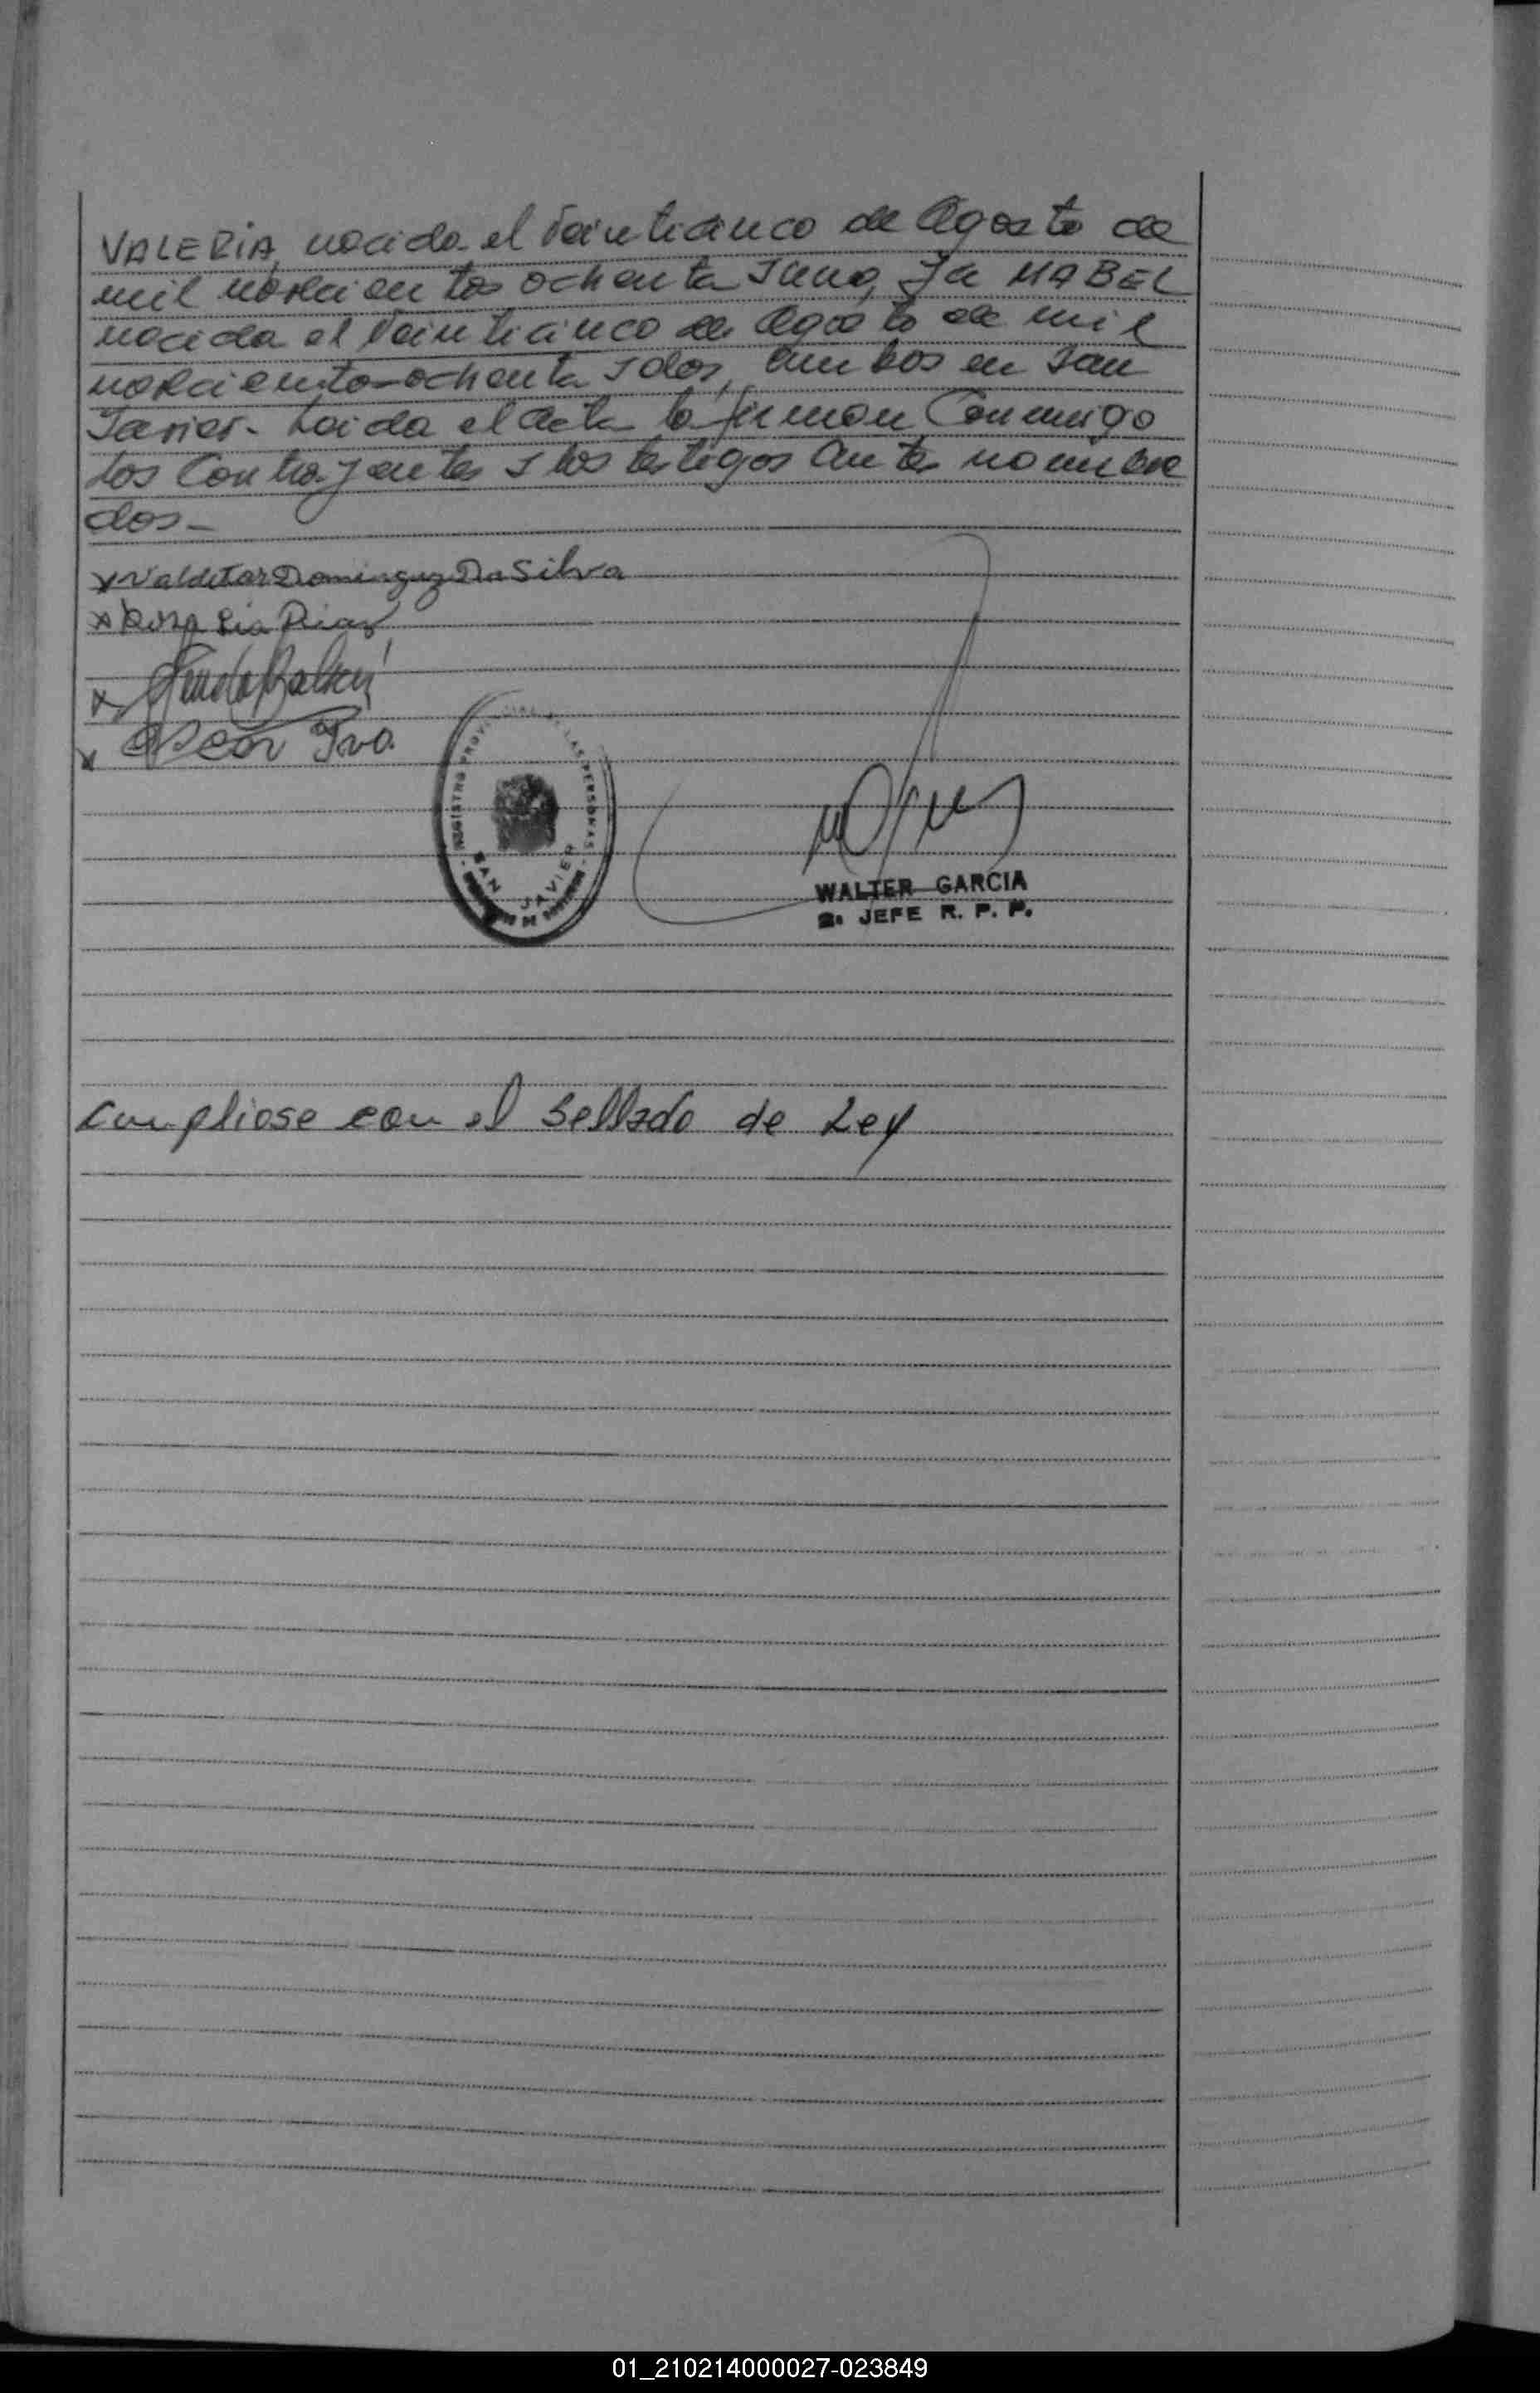 VALERIA, nacida el Veinticinco de Agosto de
mil novecientos ochenta y uno, y a MABEL
nacida el Veinticinco de Agosto de mil
novecientos ochenta y dos, ambos en San
Javier.- Leida el Acta la firman Conmigo
los Contrayentes y los testigos Ante nombra
dos.-
x Valdetar Dominguez Da Silva
x Rosa Lia Diaz
x
x Oscar
REGISTRO PROVINCIAL DE LAS PERSONAS
SAN JAVIER
WALTER GARCIA
2. JEFE R. P. P.
Cumpliose con el Sellado de Ley
01_210214000027-023849